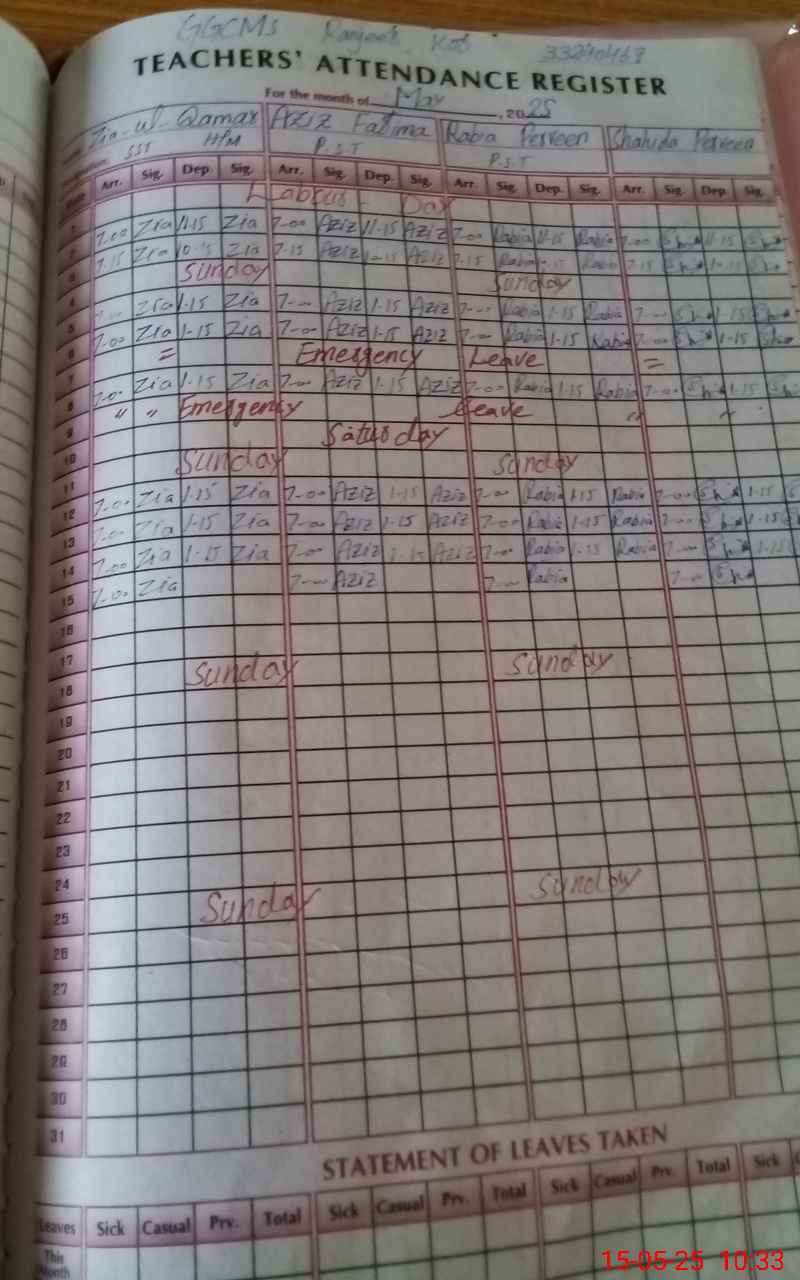 GGCMS Ranjeet Kot 33240468
TEACHERS' ATTENDANCE REGISTER
For the month of May, 2025
Zia-ul-Qamar Aziz Fatima Rabia Perveen Shahida Perveen
SST H/M P.S.T P.S.T
Arr. Sig. Dep. Sig. Arr. Sig. Dep. Sig. Arr. Sig. Dep. Sig. Arr. Sig. Dep. Sig.
1 Labour Day
2 7-00 Zia 11-15 Zia 7-00 Aziz 11-15 Aziz 7-00 Rabia 11-15 Rabia 7-00 11-15
3 7-15 Zia Zia 7-15 Aziz Aziz 7-15 Rabia Rabia 7-15
4 Sunday Sunday
5 Zia 1-15 Zia 7-00 Aziz 1-15 Aziz 7-00 Rabia 1-15 Rabia 7-00 1-15
6 7-00 Zia 1-15 Zia 7-00 Aziz 1-15 Aziz 7-00 Rabia 1-15 Rabia 7-00 1-15
7 = Emergency Leave =
8 7-00 Zia 1-15 Zia 7-00 Aziz 1-15 Aziz 7-00 Rabia 1-15 Rabia 7-00 1-15
9 " " Emergency Leave " "
10 Saturday
11 Sunday Sunday
12 7-00 Zia 1-15 Zia 7-00 Aziz 1-15 Aziz 7-00 Rabia 1-15 Rabia 7-00 1-15
13 7-00 Zia 1-15 Zia 7-00 Aziz 1-15 Aziz 7-00 Rabia 1-15 Rabia 7-00 1-15
14 7-00 Zia 1-15 Zia 7-00 Aziz 1-15 Aziz 7-00 Rabia 1-15 Rabia 7-00 1-15
15 7-00 Zia 7-00 Aziz 7-00 Rabia 7-00
16
17
18 Sunday Sunday
19
20
21
22
23
24
25 Sunday Sunday
26
27
28
29
30
31
STATEMENT OF LEAVES TAKEN
Leaves Sick Casual Prv. Total Sick Casual Prv. Total Sick Casual Prv. Total Sick
This
Month
15-05-25 10:33